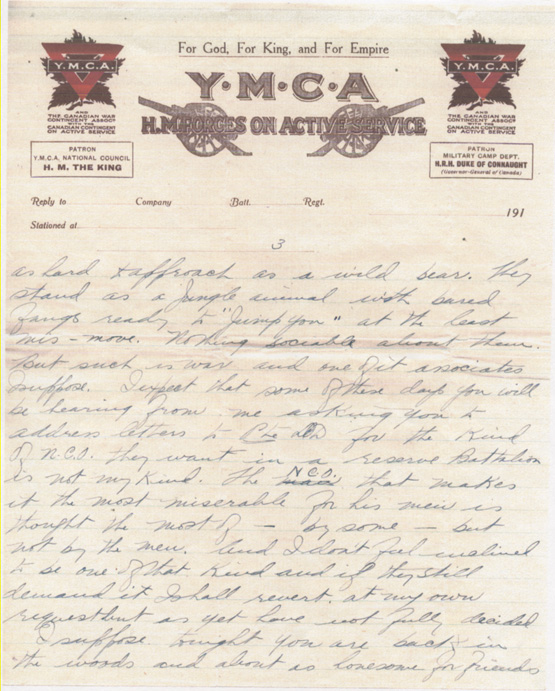 For God, For King, and For Empire
Y·M·C·A
H.M. FORCES ON ACTIVE SERVICE
Y.M.C.A.
AND
THE CANADIAN WAR
CONTINGENT ASSOCN
WITH THE
CANADIAN CONTINGENT
ON ACTIVE SERVICE
PATRON
Y.M.C.A. NATIONAL COUNCIL
H. M. THE KING
Y.M.C.A.
AND
THE CANADIAN WAR
CONTINGENT ASSOCN
WITH THE
CANADIAN CONTINGENT
ON ACTIVE SERVICE
PATRON
MILITARY CAMP DEPT.
H.R.H. DUKE OF CONNAUGHT
(Governor-General of Canada)
Reply to Company Batt. Regt.
191
Stationed at
3
as hard + approach as a wild bear. They
stand as a jungle animal with bared
fangs ready to "jump you" at the least
mis-move. Nothing sociable about them.
But such is war and one of it associates
suppose. I expect that some of these days you will
be hearing from me asking you to
address letters to Pte for the kind
of N.C.O. they want in a reserve Battalion
is not my kind. The N.C.O. that makes
it the most miserable for his men is
thought the most of – by some – but
not by the men. And I dont feel inclined
to be one of that kind and if they still
demand it I shall revert at my own
request but as yet have not fully decided
I suppose tonight you are back in
the woods and about as lonesome for friends